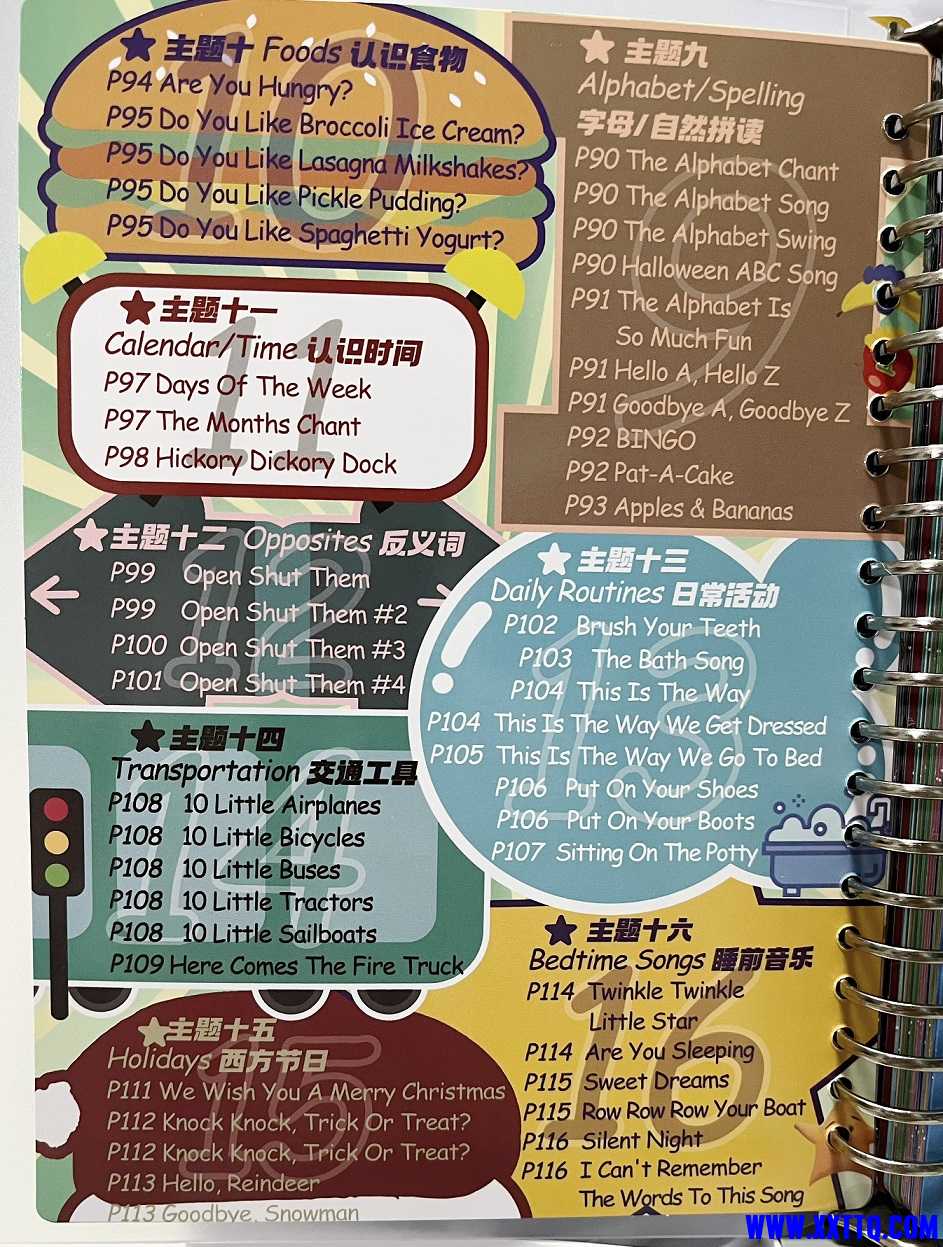 ★ 主题十 Foods 认识食物
P94 Are You Hungry?
P95 Do You Like Broccoli Ice Cream?
P95 Do You Like Lasagna Milkshakes?
P95 Do You Like Pickle Pudding?
P95 Do You Like Spaghetti Yogurt?
10
★ 主题九
Alphabet/Spelling
字母/自然拼读
P90 The Alphabet Chant
P90 The Alphabet Song
P90 The Alphabet Swing
P90 Halloween ABC Song
P91 The Alphabet Is
So Much Fun
P91 Hello A, Hello Z
P91 Goodbye A, Goodbye Z
P92 BINGO
P92 Pat-A-Cake
P93 Apples & Bananas
9
★ 主题十一
Calendar/Time 认识时间
P97 Days Of The Week
P97 The Months Chant
P98 Hickory Dickory Dock
11
★ 主题十二 Opposites 反义词
P99 Open Shut Them
P99 Open Shut Them #2
P100 Open Shut Them #3
P101 Open Shut Them #4
12
★ 主题十三
Daily Routines 日常活动
P102 Brush Your Teeth
P103 The Bath Song
P104 This Is The Way
P104 This Is The Way We Get Dressed
P105 This Is The Way We Go To Bed
P106 Put On Your Shoes
P106 Put On Your Boots
P107 Sitting On The Potty
13
★ 主题十四
Transportation 交通工具
P108 10 Little Airplanes
P108 10 Little Bicycles
P108 10 Little Buses
P108 10 Little Tractors
P108 10 Little Sailboats
P109 Here Comes The Fire Truck
14
★ 主题十五
Holidays 西方节日
P111 We Wish You A Merry Christmas
P112 Knock Knock, Trick Or Treat?
P112 Knock Knock, Trick Or Treat?
P113 Hello, Reindeer
P113 Goodbye, Snowman
15
★ 主题十六
Bedtime Songs 睡前音乐
P114 Twinkle Twinkle
Little Star
P114 Are You Sleeping
P115 Sweet Dreams
P115 Row Row Row Your Boat
P116 Silent Night
P116 I Can't Remember
The Words To This Song
16
WWW.XXTTQ.COM